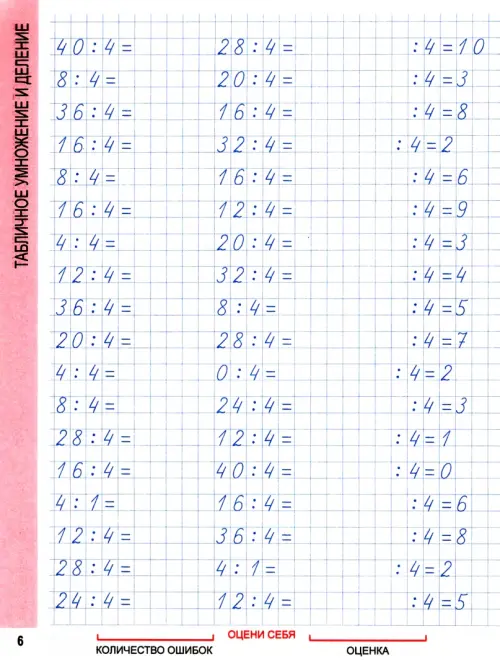 ТАБЛИЧНОЕ УМНОЖЕНИЕ И ДЕЛЕНИЕ
40:4= 28:4= :4=10
8:4= 20:4= :4=3
36:4= 16:4= :4=8
16:4= 32:4= :4=2
8:4= 16:4= :4=6
16:4= 12:4= :4=9
4:4= 20:4= :4=3
12:4= 32:4= :4=4
36:4= 8:4= :4=5
20:4= 28:4= :4=7
4:4= 0:4= :4=2
8:4= 24:4= :4=3
28:4= 12:4= :4=1
16:4= 40:4= :4=0
4:1= 16:4= :4=6
12:4= 36:4= :4=8
28:4= 4:1= :4=2
24:4= 12:4= :4=5
6
ОЦЕНИ СЕБЯ
КОЛИЧЕСТВО ОШИБОК ОЦЕНКА